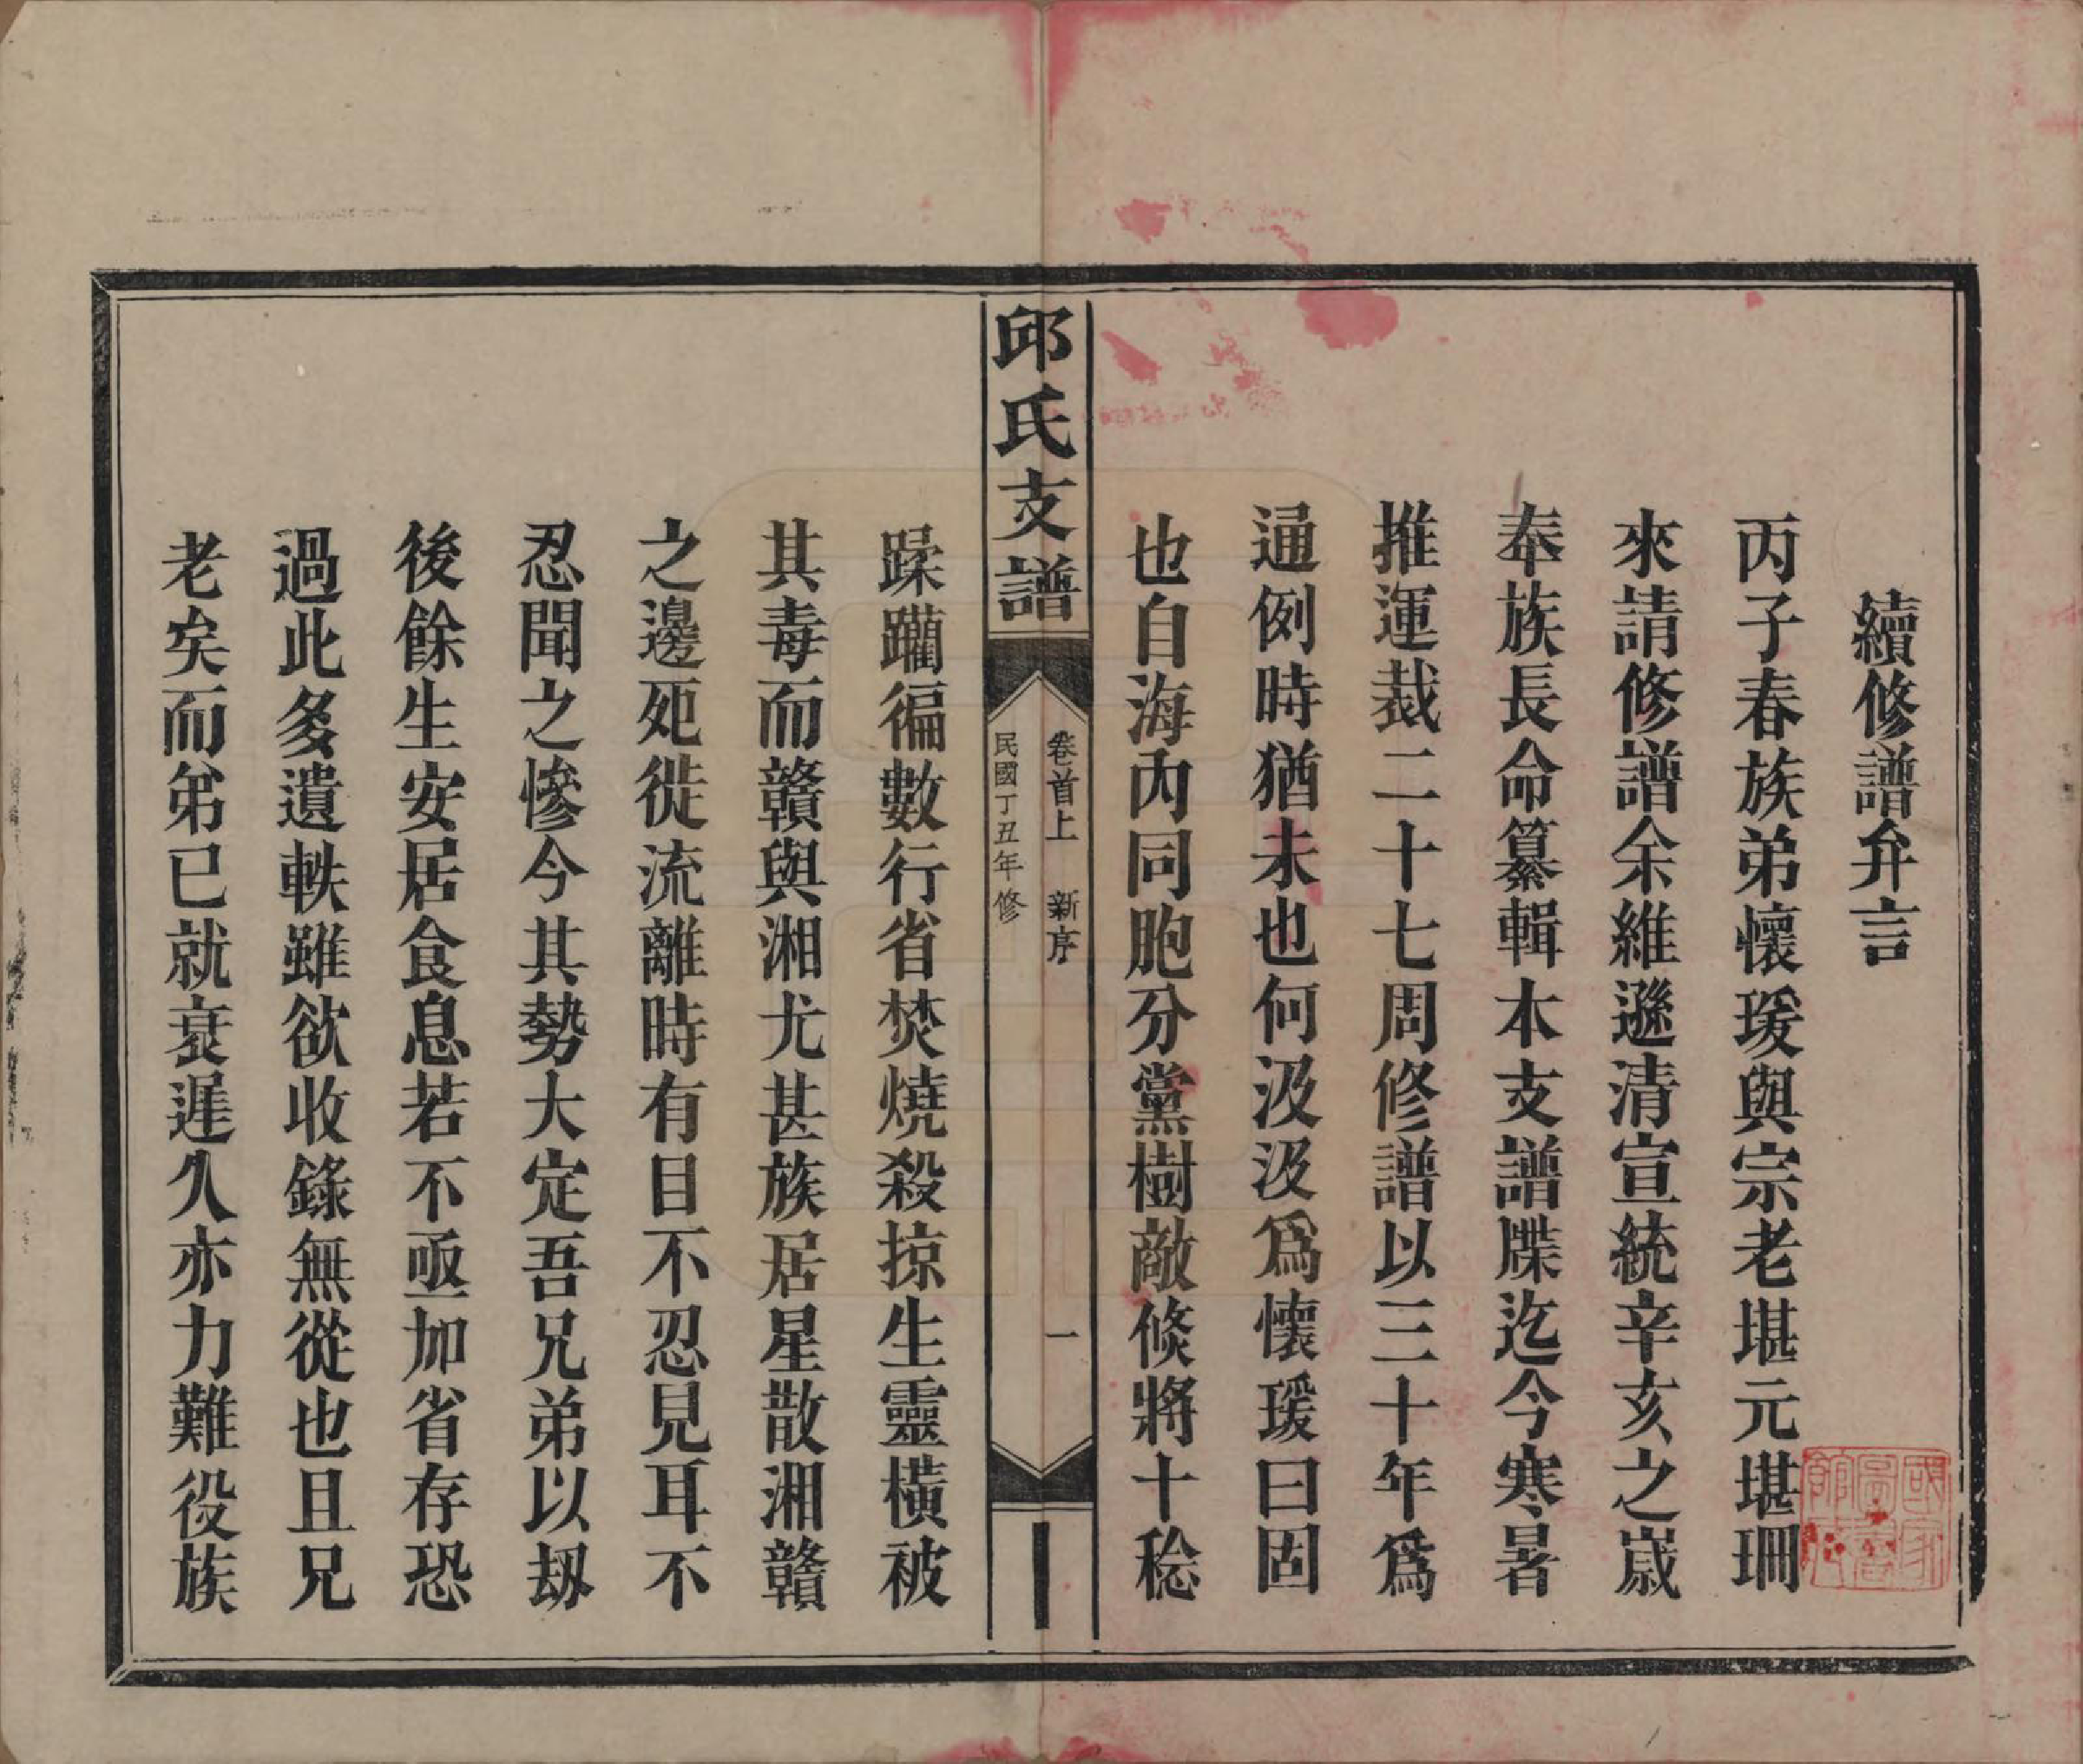 續修譜弁言
丙子春族弟懷瑗與宗老堪元堪珊
來請修譜余維遜清宣統辛亥之歲
奉族長命纂輯本支譜牒迄今寒暑
推運裁二十七周修譜以三十年爲
通例時猶未也何汲汲爲懷瑗曰固
也自海內同胞分黨樹敵倐將十稔
邱氏支譜
卷首上 新序
一
民國丁丑年修
蹂躪徧數行省焚燒殺掠生靈橫被
其毒而贛與湘尤甚族居星散湘贛
之邊死徙流離時有目不忍見耳不
忍聞之慘今其勢大定吾兄弟以刼
後餘生安居食息若不亟加省存恐
過此多遺軼雖欲收錄無從也且兄
老矣而弟已就衰遲久亦力難役族
國家圖書館藏